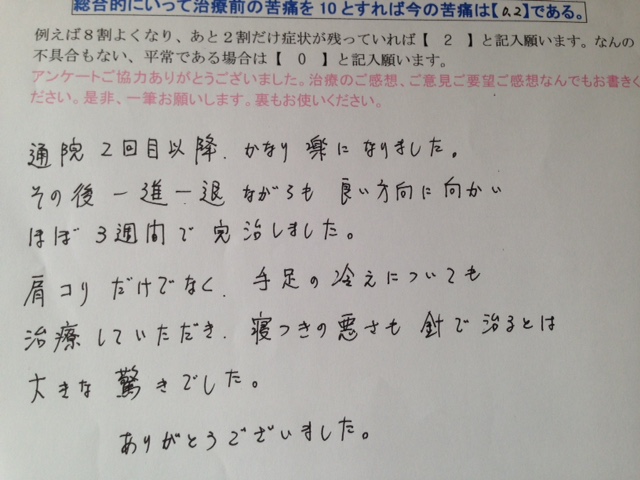 総合的にいって治療前の苦痛を10とすれば今の苦痛は【0.2】である。
例えば8割よくなり、あと2割だけ症状が残っていれば【 2 】と記入願います。なんの
不具合もない、平常である場合は【 0 】と記入願います。
アンケートご協力ありがとうございました。治療のご感想、ご意見ご要望ご感想なんでもお書きく
ださい。是非、一筆お願いします。裏もお使いください。
通院2回目以降、かなり楽になりました。
その後一進一退ながらも良い方向に向かい
ほぼ3週間で完治しました。
肩コリだけでなく、手足の冷えについても
治療していただき、寝つきの悪さも針で治るとは
大きな驚きでした。
ありがとうございました。